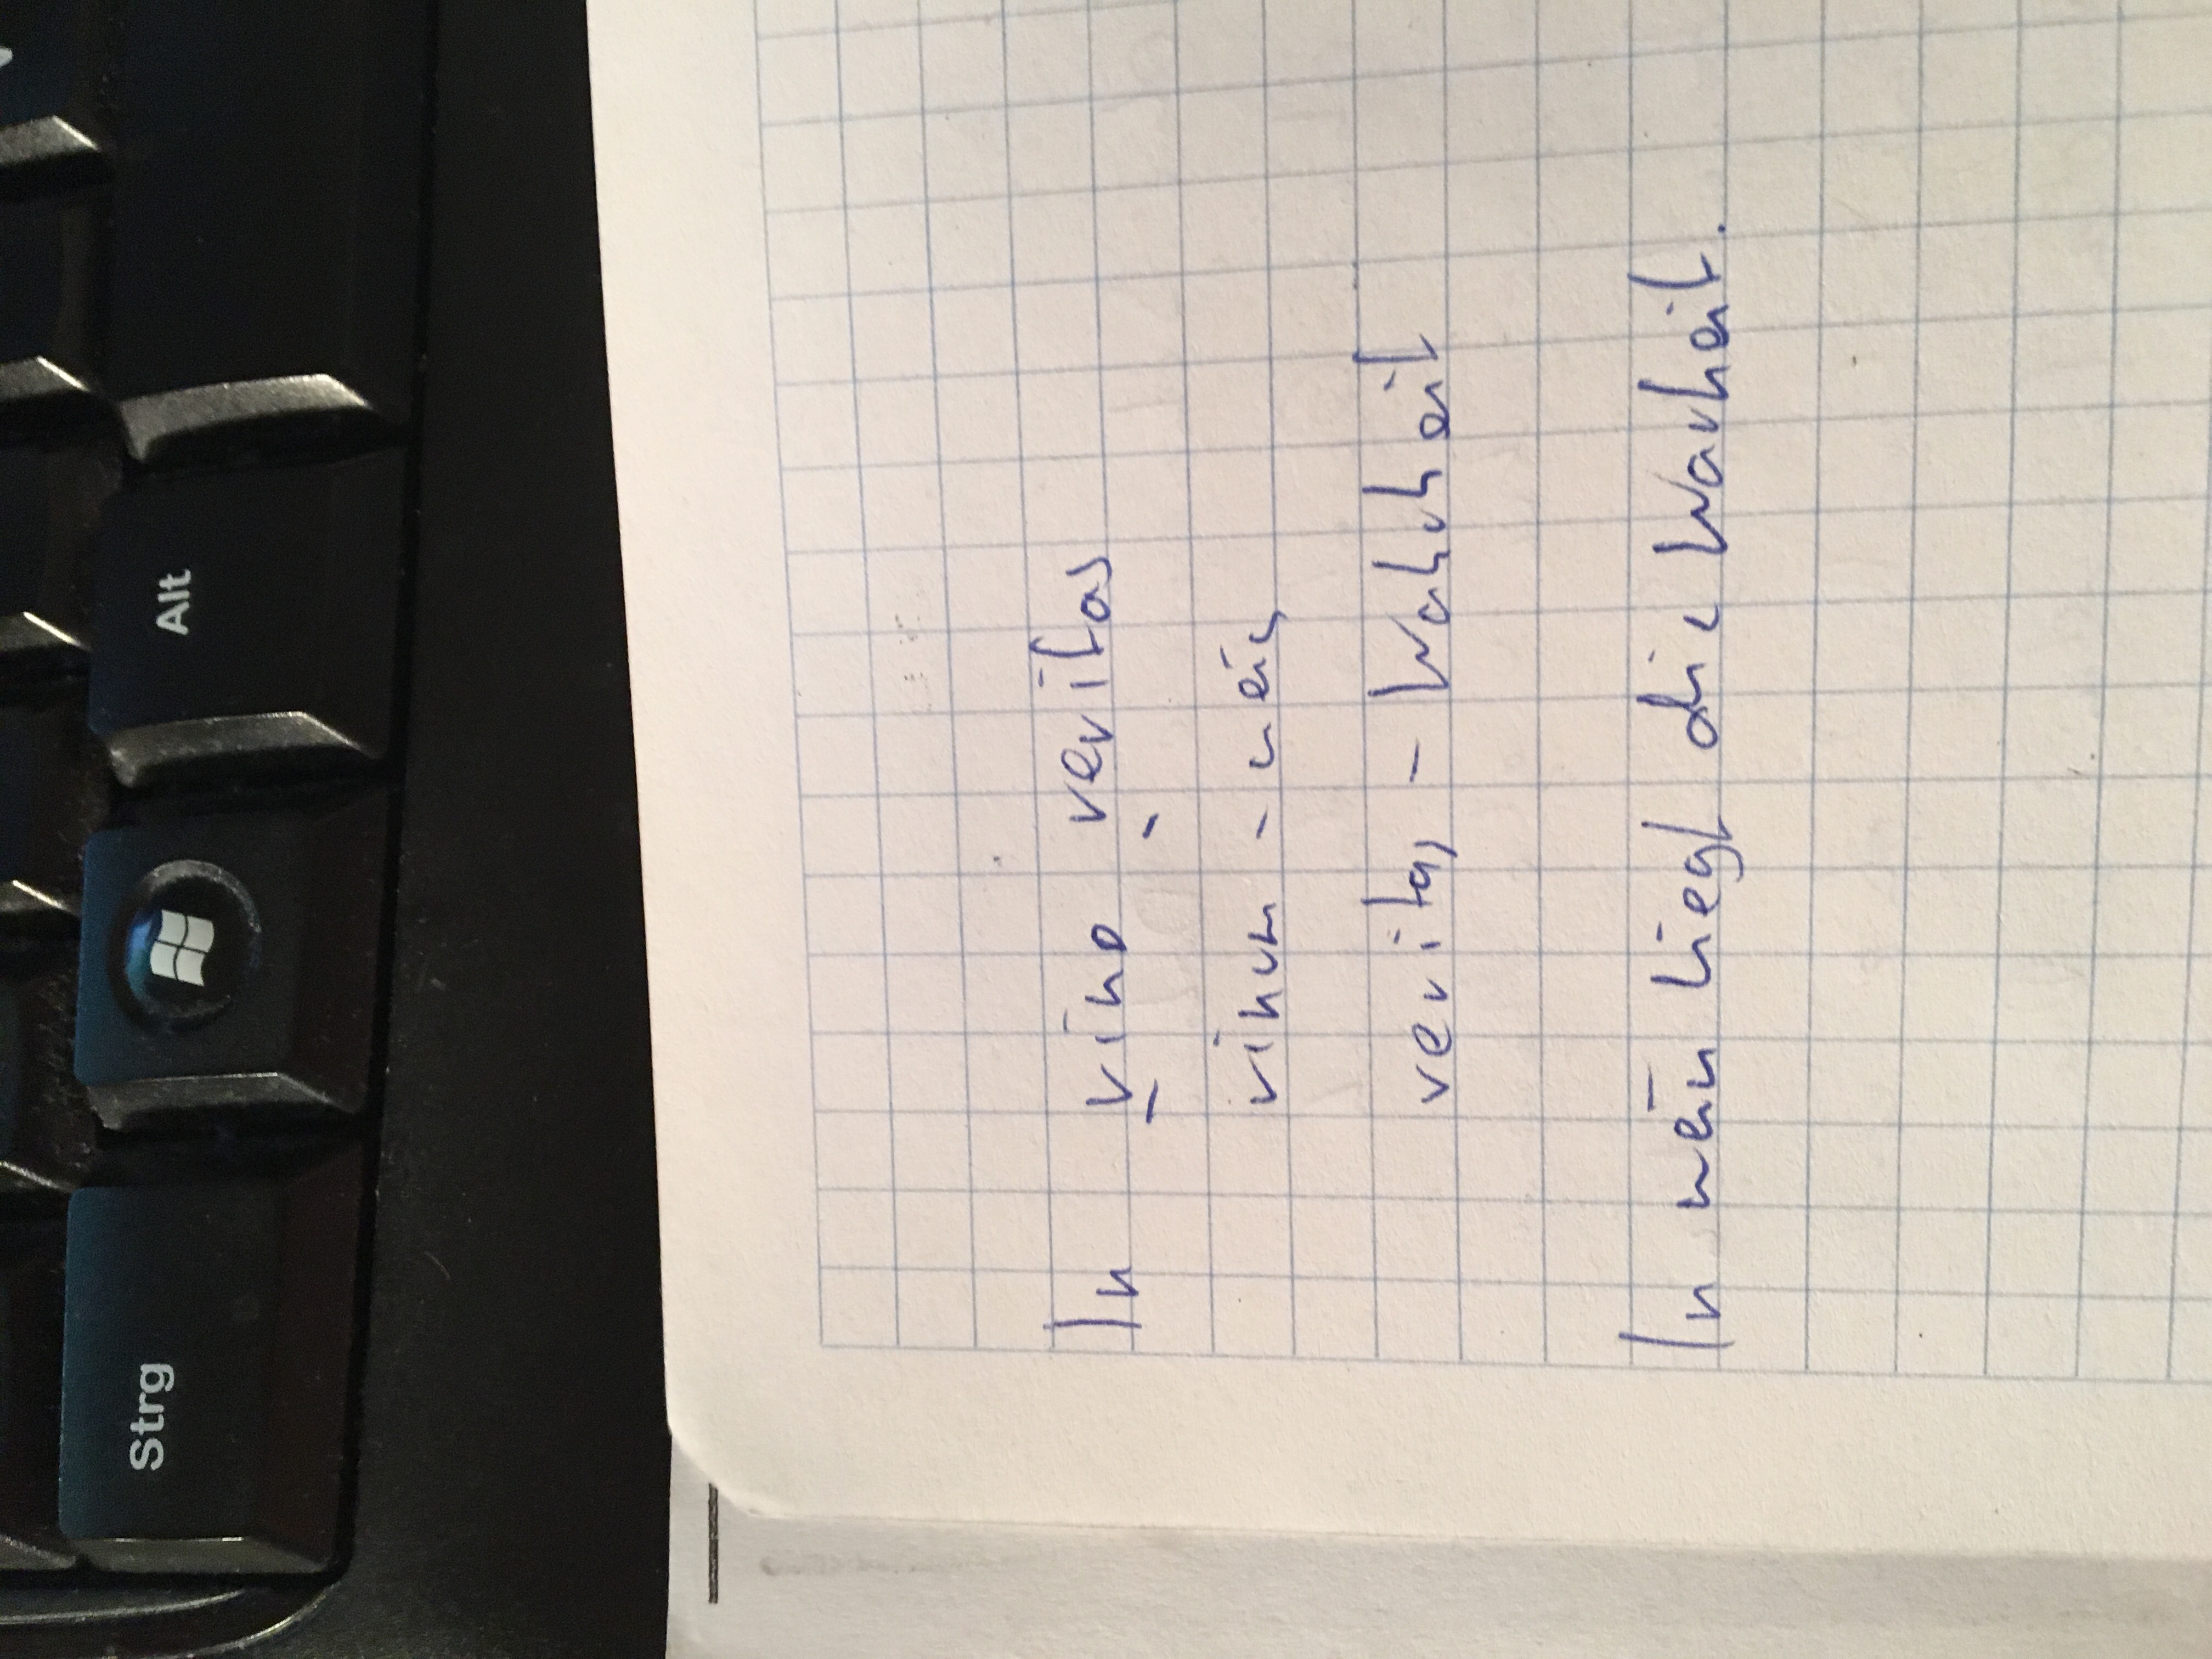 Strg Alt
In vino veritas
vinum - wein
veritas - Wahrheit
In wein liegt die Warheit.